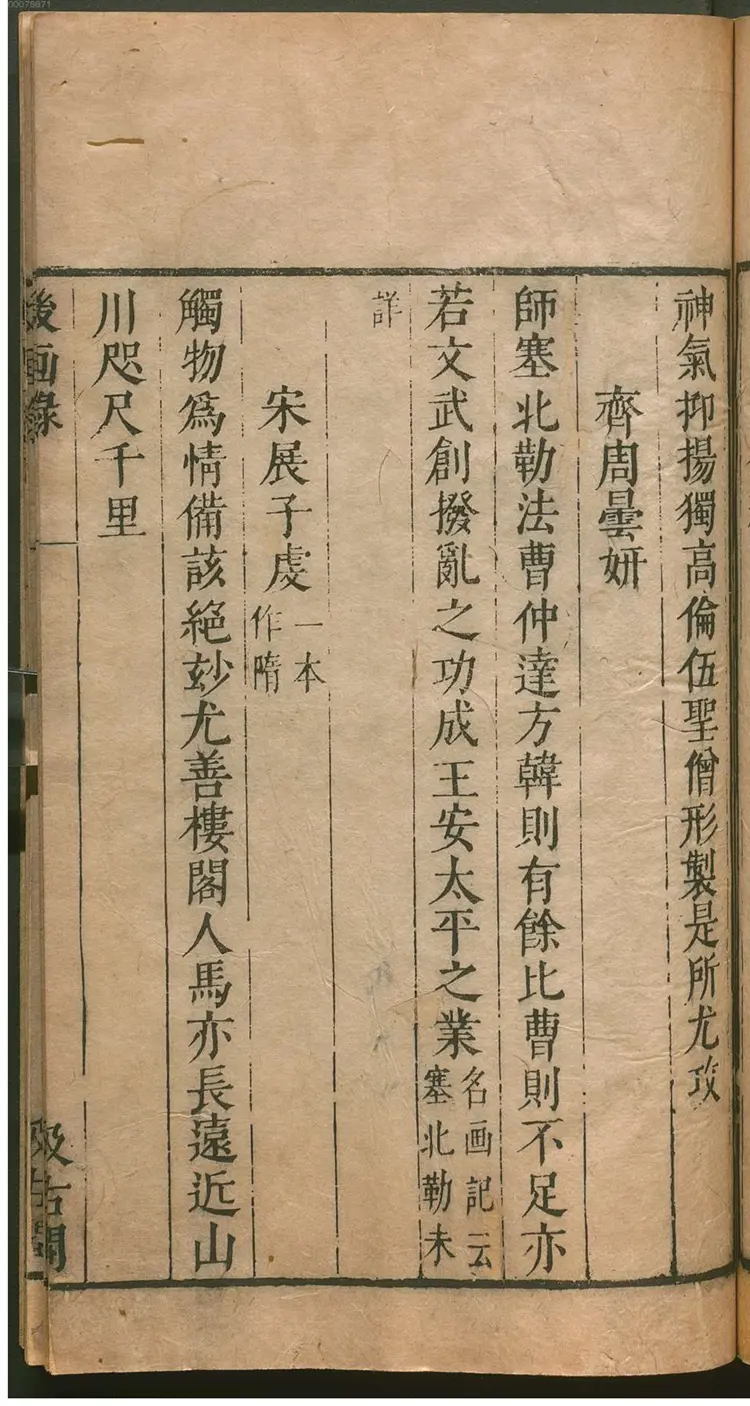 神氣抑揚獨高倫伍聖僧形製是所尤攻
齊周曇妍
師塞北勒法曹仲達方韓則有餘比曹則不足亦
若文武創撥亂之功成王安太平之業名画記云
塞北勒未
詳
宋展子虔一本
作隋
觸物爲情備該絕玅尤善樓閣人馬亦長遠近山
川咫尺千里
後画錄
汲古閣
00079871